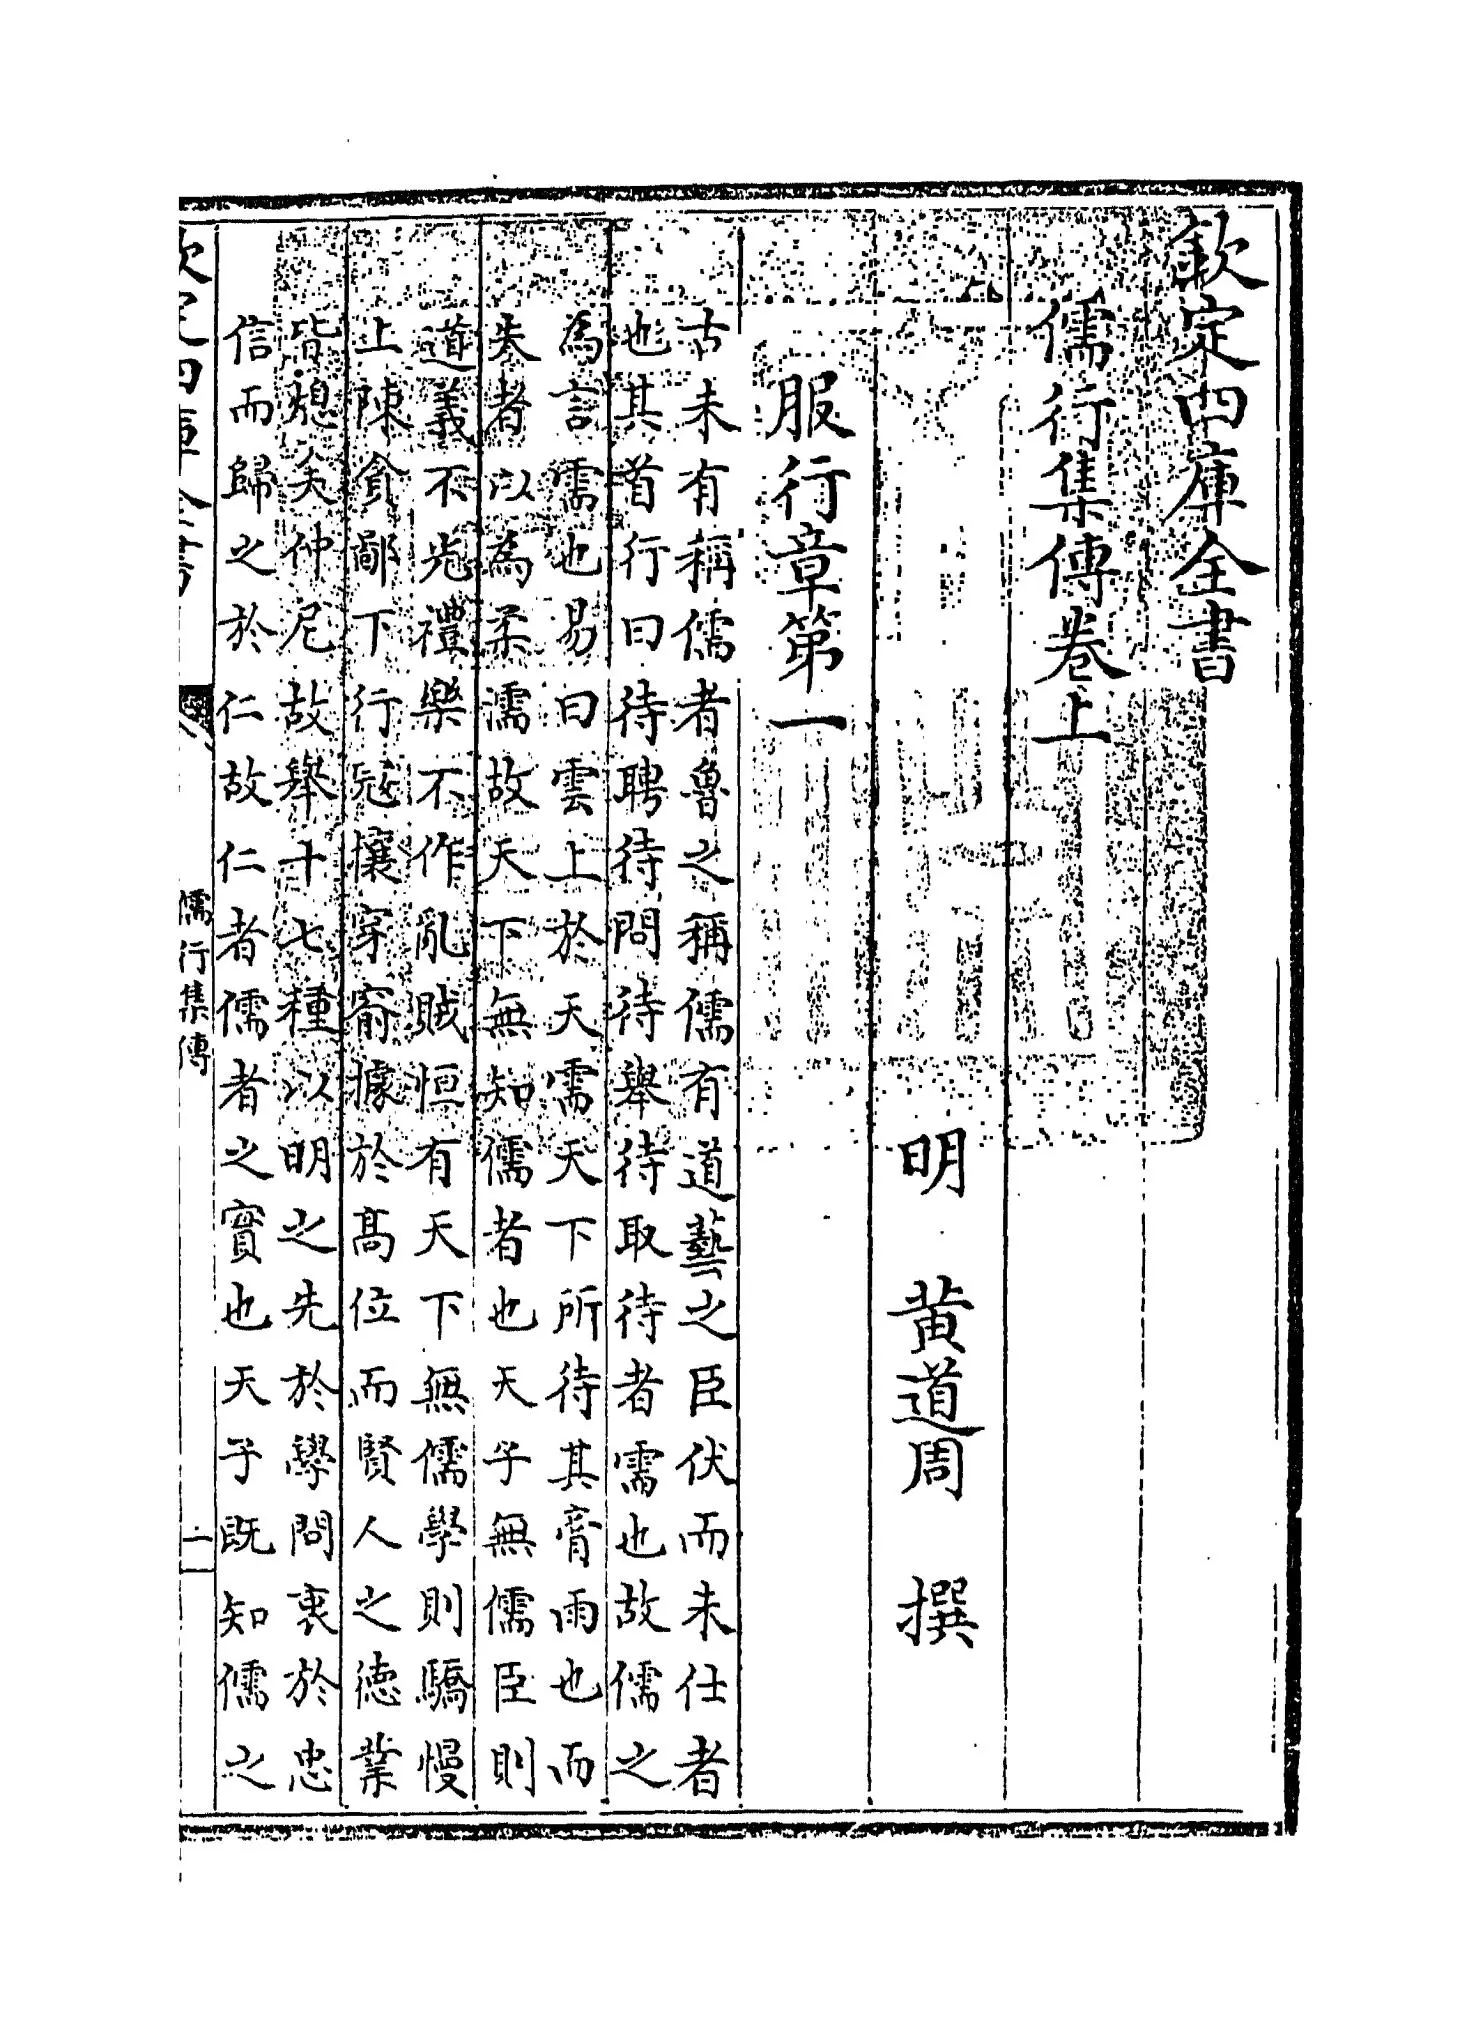 欽定四庫全書
儒行集傳卷上
明 黄道周 撰
服行章第一
古未有稱儒者魯之稱儒有道藝之臣伏而未仕者
也其首行曰待聘待問待舉待取待者需也故儒之
為言需也易曰雲上於天需天下所待其膏雨也而
者以為柔濡故天下無知儒者也天子無儒臣則
道義不光禮樂不作亂賊恒有天下無儒學則驕慢
上陳貪鄙下行冦攘穿窬據於髙位而賢人之德業
皆熄矣仲尼故舉十七種以明之先於學問衷於忠
信而歸之於仁故仁者儒者之實也天子既知儒之
欽定四庫全書 儒行集傳 一